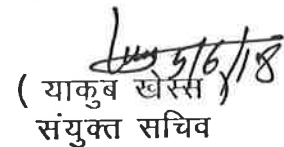 5/6/18
( याकुब खेस्स )
संयुक्त सचिव